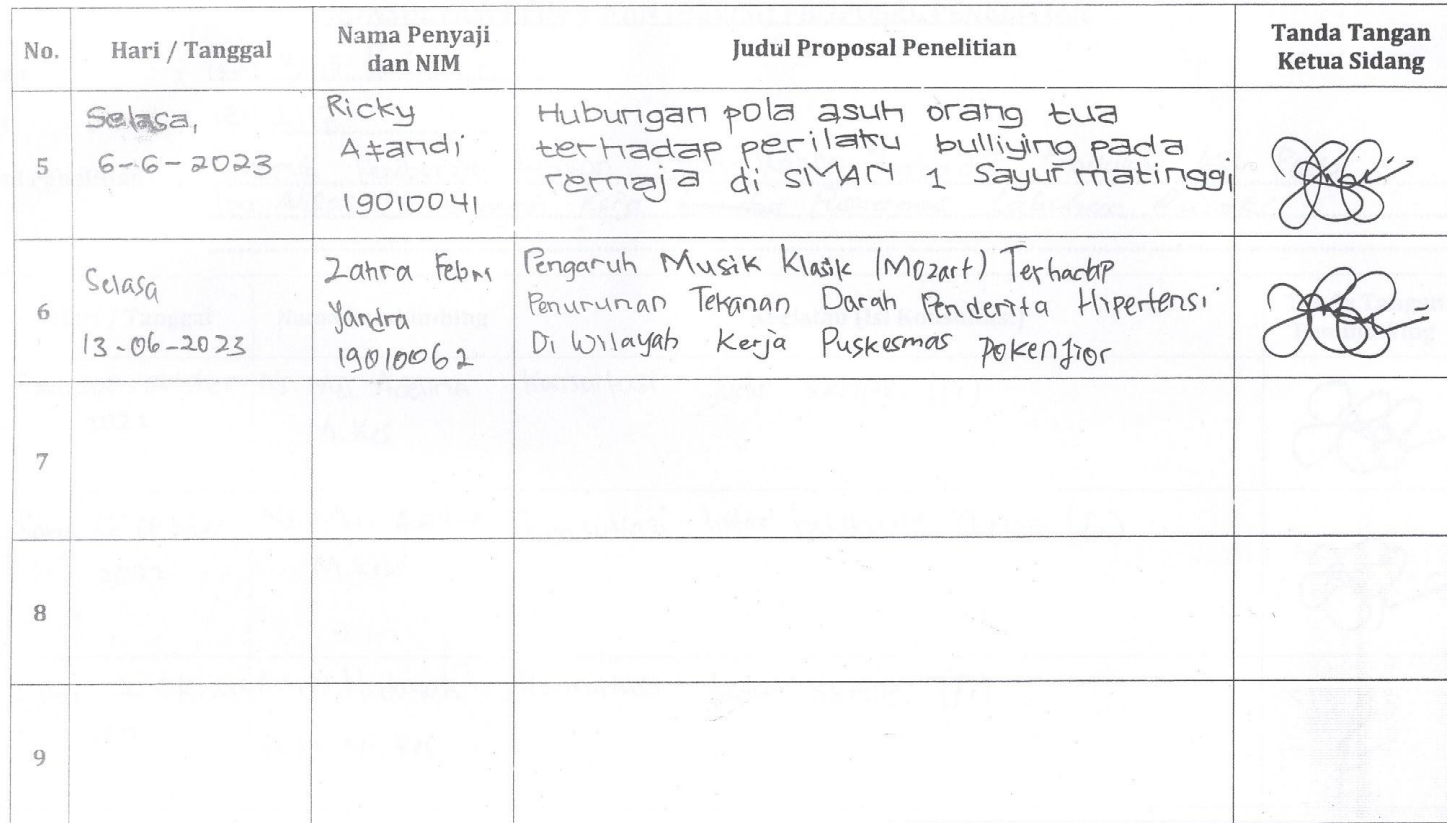 No. Hari / Tanggal Nama Penyaji dan NIM Judul Proposal Penelitian Tanda Tangan Ketua Sidang
5
Selasa,
6-6-2023
Ricky
Afandi
19010041
Hubungan pola asuh orang tua
terhadap perilaku bulliying pada
remaja di SMAN 1 Sayurmatinggi
6
Selasa
13-06-2023
Zahra Febri
Yandra
19010062
Pengaruh Musik Klasik (Mozart) Terhadap
Penurunan Tekanan Darah Penderita Hipertensi
Di Wilayah Kerja Puskesmas Pokenjior
7
8
9